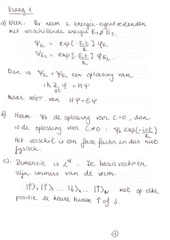 Vraag 1
a) Neen. Bv neem 2 energie-eigentoestanden
met verschillende energie E₁ ≠ E₂
ψ_E₁ = exp[-iE₁t/ħ] φ_E₁
ψ_E₂ = exp[-iE₂t/ħ] φ_E₂
Dan is ψ_E₁ + ψ_E₂ een oplossing van
iħ ∂/∂t ψ = Hψ
maar niet van Hψ = Eψ
b) Neem ψ₀ de oplossing voor C=0, dan
is de oplossing voor C≠0 : ψ₀ exp(-iCt/ħ)
Het verschil is een fase factor en dus niet
fysisch.
c) Dimensie is 2^N. De basisvectoren
zijn immers van de vorm
|↑⟩₁ |↑⟩₂ ... |↓⟩ ... |↑⟩_N met op elke
positie de keuze tussen ↑ of ↓.